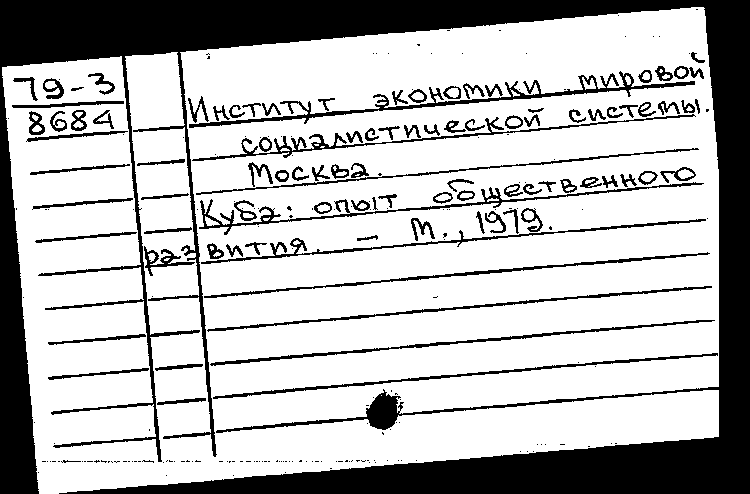 79-3
8684
Институт экономики мировой
социалистической системы.
Москва.
Куба: опыт общественного
развития. — М., 1979.